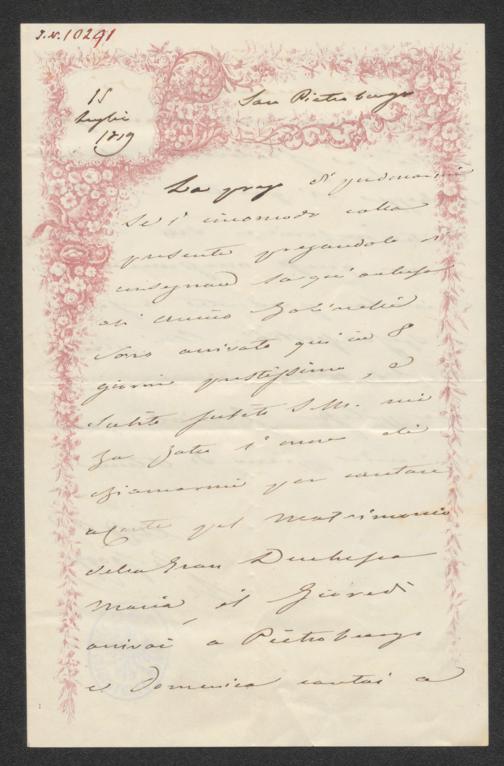 J.N. 10291
15
Luglio
1839
San Pietroburgo
La prego di perdonarmi
se l' incomodo colla
presente pregandola di
consegnare la qui anchiusa
al amico
Sono arrivata qui in 8
giorni prestissimo, e
subito subito S.M. mi
ha fatto l'onore di
chiamarmi per cantare
a Corte pel Matrimonio
della Gran Duchessa
Maria, il Giovedì
arrivai a Pietroburgo
e Domenica cantai a